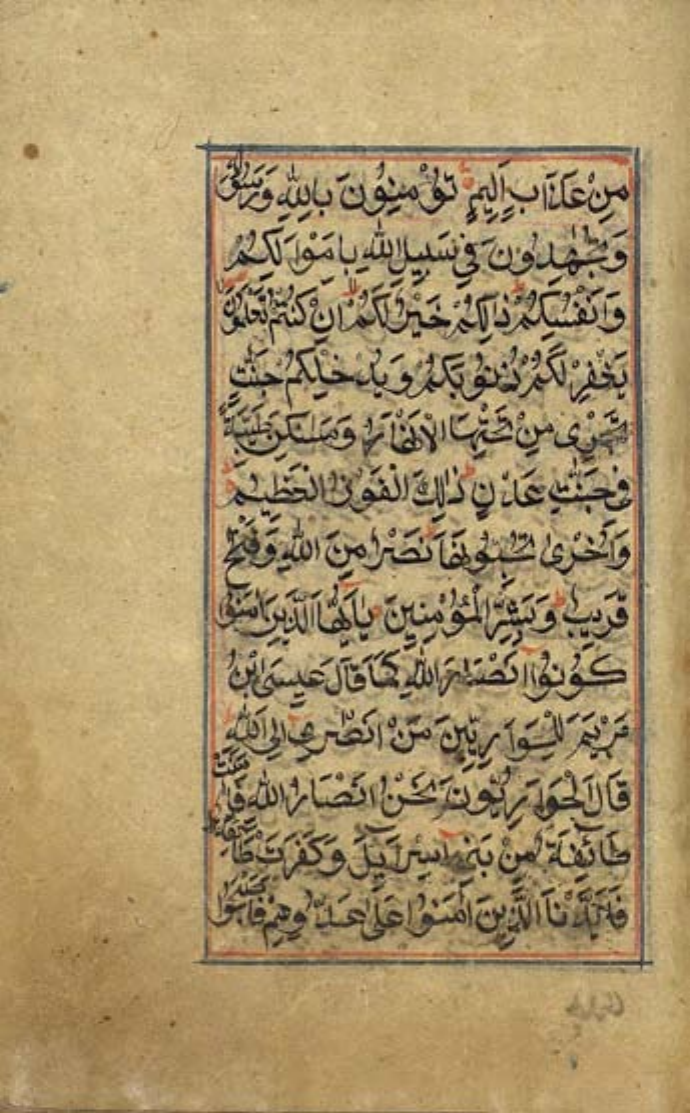 مِنْ عَذَابٍ اَلِيمٍ تُؤْمِنُونَ بِاللّٰهِ وَرَسُولِهِ
وَتُجٰهِدُونَ فِي سَبِيلِ اللّٰهِ بِاَمْوَالِكُمْ
وَاَنْفُسِكُمْ ذٰلِكُمْ خَيْرٌ لَكُمْ اِنْ كُنْتُمْ تَعْلَمُونَ
يَغْفِرْ لَكُمْ ذُنُوبَكُمْ وَيُدْخِلْكُمْ جَنّٰتٍ
تَجْرِى مِنْ تَحْتِهَا الْاَنْهَارُ وَمَسٰكِنَ طَيِّبَةً
فِى جَنّٰتِ عَدْنٍ ذٰلِكَ الْفَوْزُ الْعَظِيمُ
وَاُخْرٰى تُحِبُّونَهَا نَصْرٌ مِنَ اللّٰهِ وَفَتْحٌ
قَرِيبٌ وَبَشِّرِ الْمُؤْمِنِينَ يَااَيُّهَا الَّذِينَ اٰمَنُوا
كُونُوا اَنْصَارَ اللّٰهِ كَمَا قَالَ عِيسَى ابْنُ
مَرْيَمَ لِلْحَوَارِيّينَ مَنْ اَنْصَارِى اِلَى اللّٰهِ
قَالَ الْحَوَارِيُّونَ نَحْنُ اَنْصَارُ اللّٰهِ فَاٰمَنَتْ
طَائِفَةٌ مِنْ بَنِى اِسْرَائِيلَ وَكَفَرَتْ طَائِفَةٌ
فَاَيَّدْنَا الَّذِينَ اٰمَنُوا عَلٰى عَدُوِّهِمْ فَاَصْبَحُوا